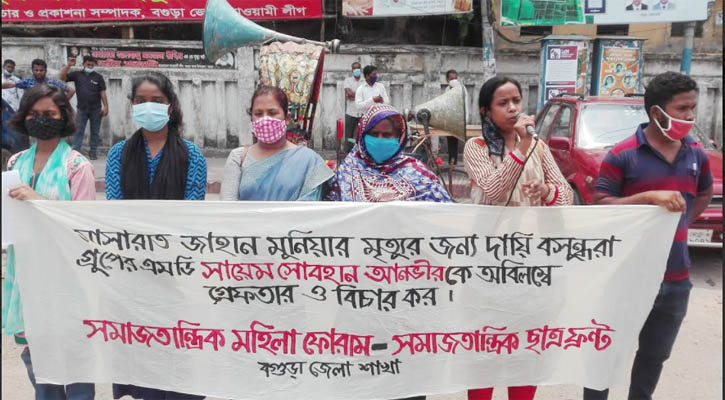 প্রচার ও প্রকাশনা সম্পাদক, বগুড়া জেলা আওয়ামী লীগ
মোসারাত জাহান মুনিয়ার মৃত্যুর জন্য দায়ি বসুন্ধরা
গ্রুপের এমডি সায়েম সোবহান আনভীরকে অবিলম্বে
গ্রেফতার ও বিচার কর।
সমাজতান্ত্রিক মহিলা ফোরাম - সমাজতান্ত্রিক ছাত্র ফ্রন্ট
বগুড়া জেলা শাখা